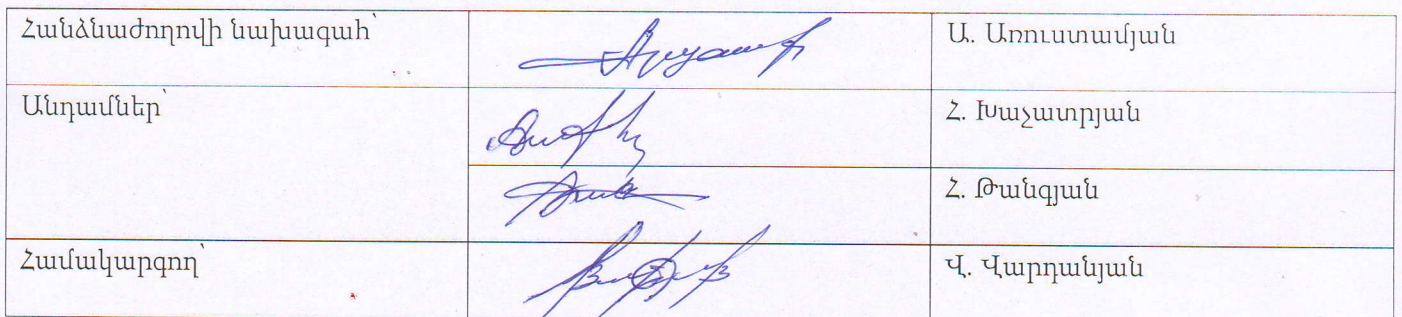 Հանձնաժողովի նախագահ՝ Ա. Առուստամյան
Անդամներ՝ Հ. Խաչատրյան
Հ. Թանգյան
Համակարգող՝ Վ. Վարդանյան